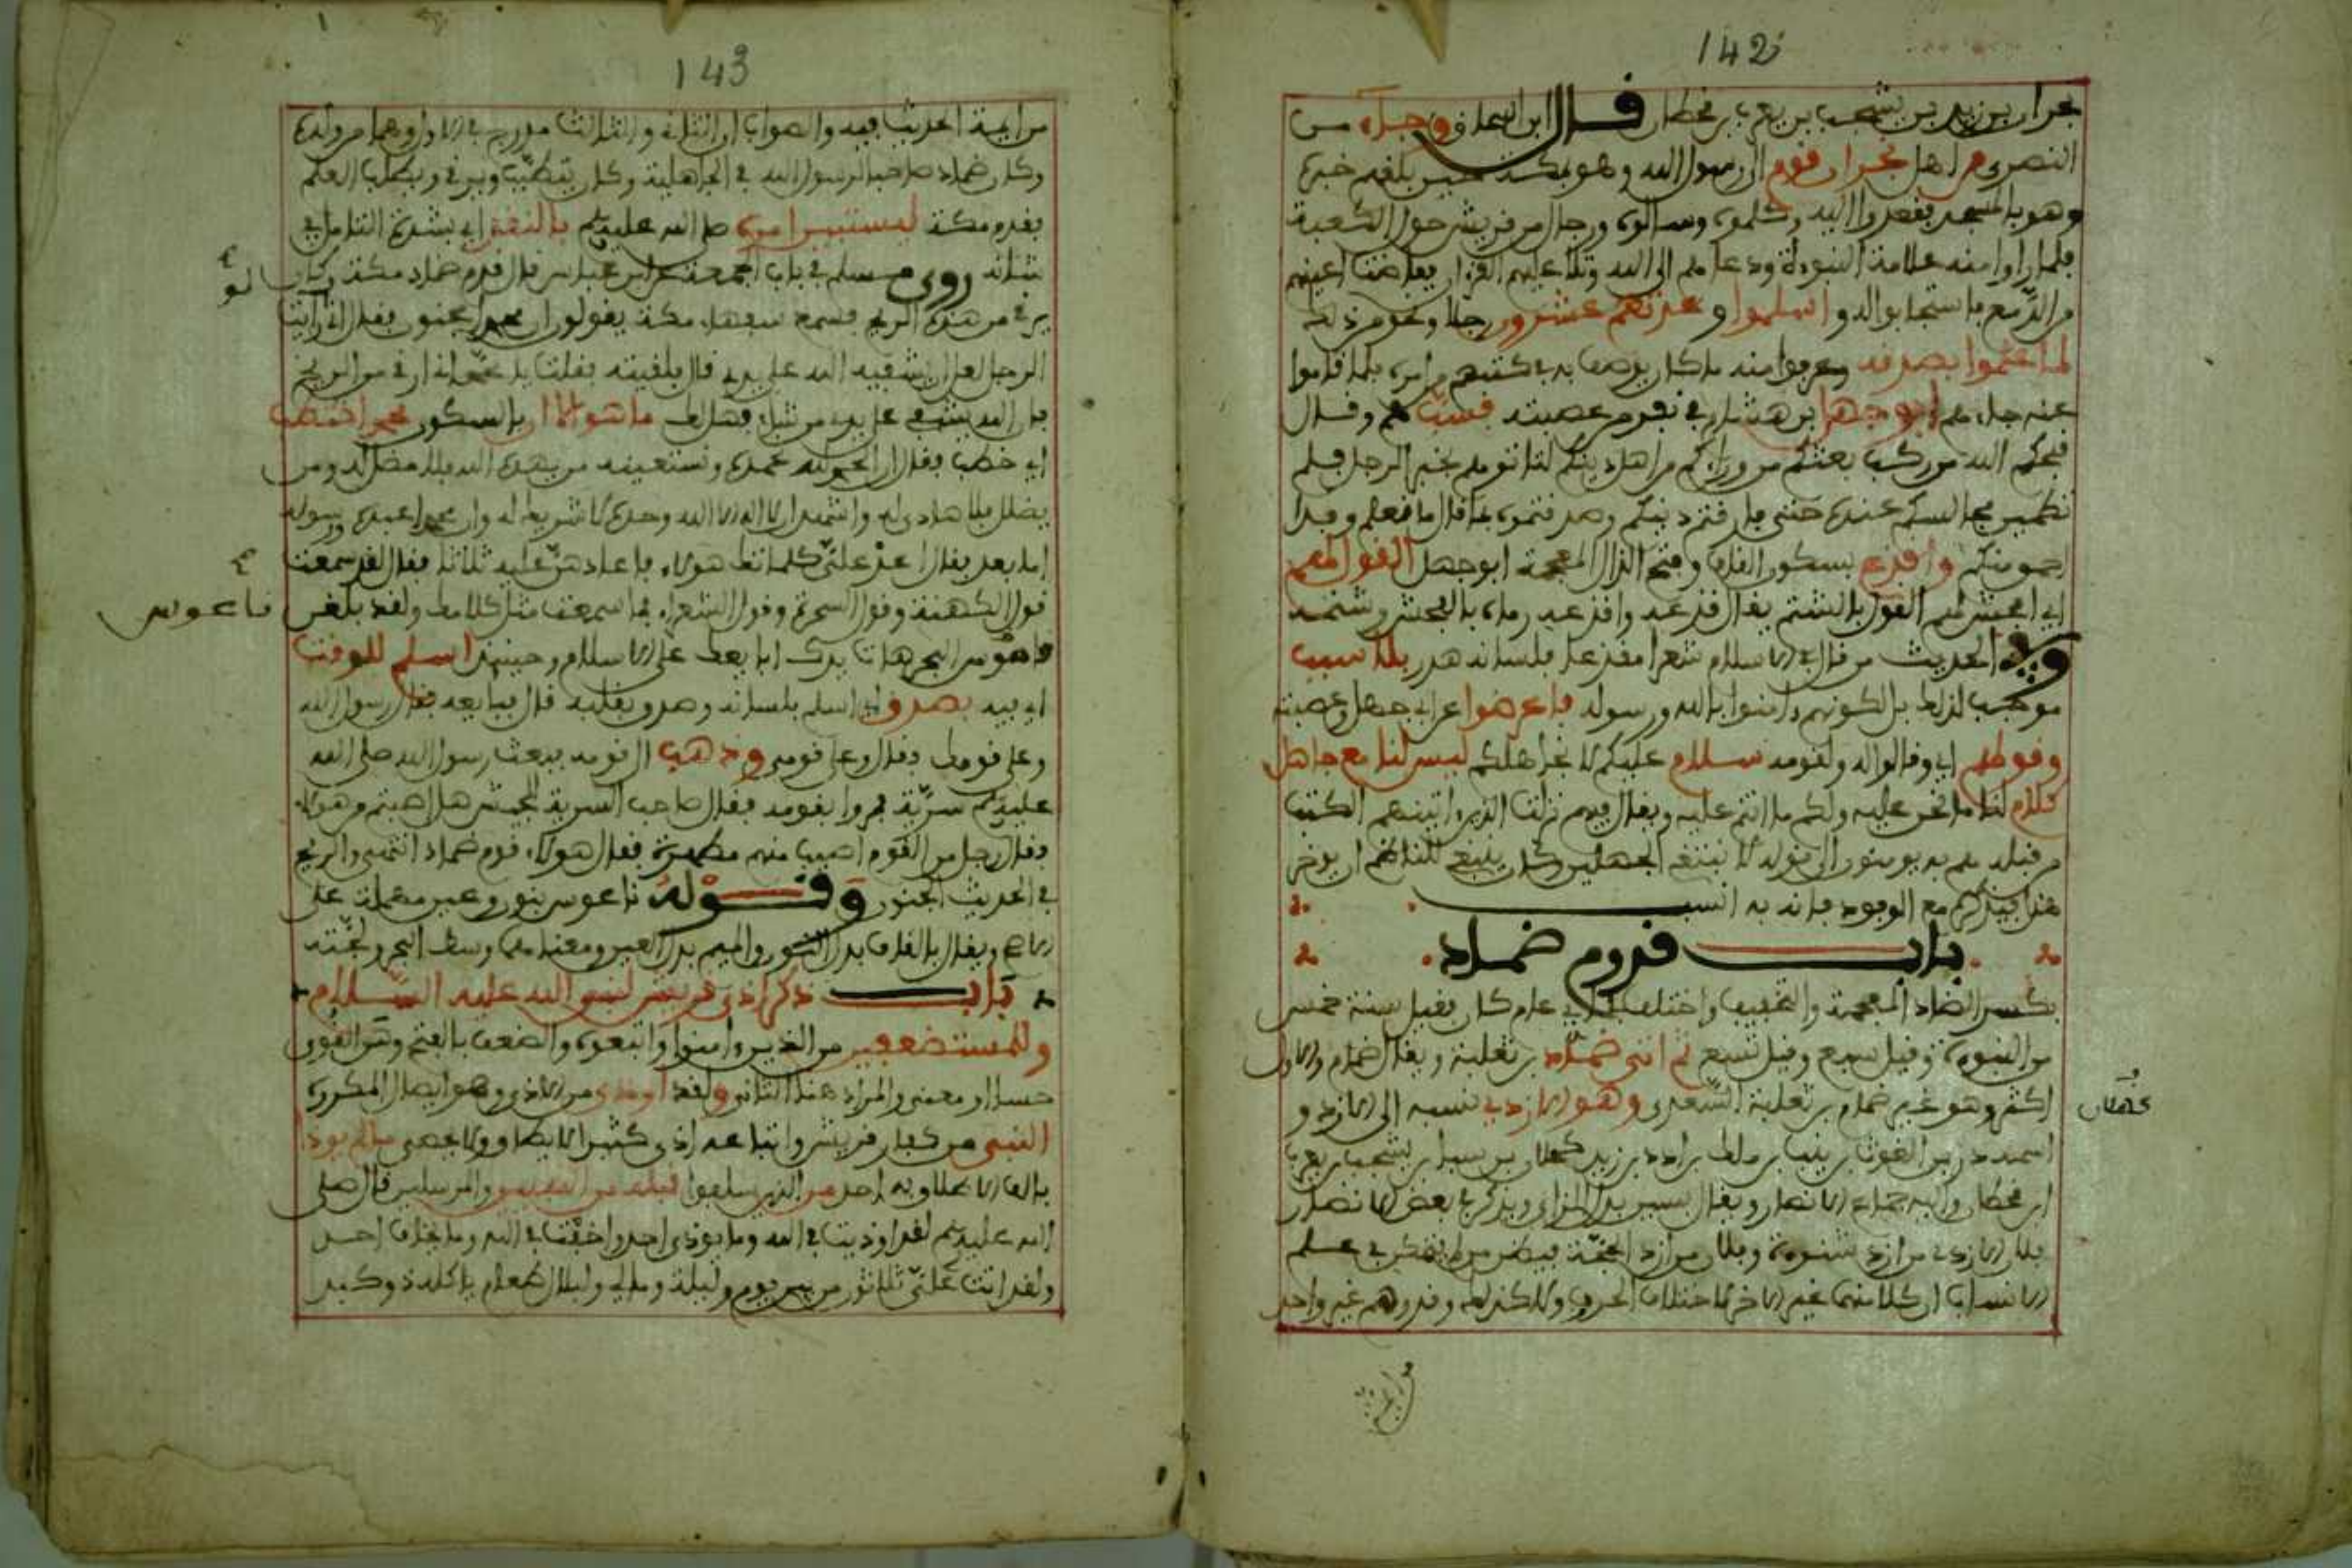 142
نجران بن زيد بن يشجب بن يعرب بن قحطان قال ابن اسحاق وجاءه من
النصرى من اهل نجران قوم الى رسول الله وهو بمكة حين بلغهم خبره
وهو بالمسجد فقعدوا اليه وكلموه وسالوه ورجال من قريش حول الكعبة
فلما راوا منه علامة النبوءة ودعاهم الى الله وتلا عليهم القرءان ففاضت اعينهم
من الدمع فاستجابوا له واسلموا وعدتهم عشرون رجلا ونحو من ذلك
لما علموا بصدقه وعرفوا منه ما كان يوصف به في كتبهم من امره فلما قاموا
عنه جاءهم ابو جهل بن هشام في نفر من عصبته فسبهم وقال
خيبكم الله من ركب بعثكم من وراءكم من اهل دينكم لتاتوهم بخبر الرجل فلم
تطمئن مجالسكم عنده حتى فارقتم دينكم وصدقتموه بما قال ما نعلم وفدا
احمق منكم واقذع بسكون القاف وفتح الذال المعجمة ابو جهل القول لهم
اي افحش لهم القول بالشتم يقال قذعه واقذعه رماه بالفحش وشتمه
وفي الحديث من قال في الاسلام شعرا مقذعا فلسانه هدر بلا سبب
موجب لذلك بل لكونهم ءامنوا بالله ورسوله فاعرضوا عن ابي جهل وعصبته
وقولهم اي وقالوا له ولقومه سلام عليكم لا نجاهلكم ليس لنا مع جاهل
كلام لنا ما نحن عليه ولكم ما انتم عليه ويقال فيهم نزلت الذين ءاتينهم الكتب
من قبله هم به يومنون الى قوله لا نبتغي الجهلين كان ينبغي للناظم ان يوخر
هذا فيذكره مع الوفود فانه به انسب
باب قدوم ضماد
بكسر الضاد المعجمة والتخفيف واختلف في اي عام كان فقيل سنة خمس
من النبوءة وقيل سبع وقيل تسع ثم اتى ضماد بن ثعلبة ويقال ضمام والاول
اكثر وهو غير ضمام بن ثعلبة السعدي وهو الازدي نسبه الى الازد و
اسمه دد بن الغوث بن نبت بن ملك بن ادد بن زيد كهلان بن سبا بن يشجب بن يعرب
كهلان
ابن قحطان واليه جماع الانصار ويقال بسين بدل الزاي ويذكر في بعض الانصار
فلان الازدي من ازد شنوءة وفلان من ازد الحجة فيظن من لا يفكر في علم
الانساب ان كلا منهما غير الاخر لاختلاف الحروف ولا كذلك وقد وهم غير واحد
143
من ايمة الحديث فيه والصواب ان الثاني والثالث مندرج في الاول وهما من ولده
وكان ضماد صاحبا لرسول الله في الجاهلية وكان يتطبب ويرقي ويطلب العلم
فقدم مكة ليستبين امره صلى الله عليه وسلم بالنظر اي بشدة التامل في
شانه روى مسلم في باب الجمعة عن ابن عباس قال قدم ضماد مكة وكان
يرقي من هذه الريح فسمع سفهاء مكة يقولون ان محمدا مجنون فقال اني رايت
الرجل لعل ان يشفيه الله على يدي قال فلقيته فقلت يا محمد اني ارقي من الريح
فان الله يشفي على يدي من شاء فهل لك ما هو الا ان بالسكون محمد اختطب
اي خطب فقال ان الحمد لله نحمده ونستعينه من يهده الله فلا مضل له ومن
يضلل فلا هادي له واشهد ان لا اله الا الله وحده لا شريك له وان محمدا عبده ورسوله
اما بعد فقال اعد علي كلماتك هولاء فاعادهن عليه ثلاثا فقال لقد سمعت
قول الكهنة وقول السحرة وقول الشعراء فما سمعت مثل كلامك ولقد بلغن
ناعوس
قاموس البحر هات يدك ابايعك على الاسلام وحينئذ اسلم للوقت
اي فيه بصدق اي اسلم بلسانه وصدق بقلبه قال فبايعه فقال رسول الله
وعلى قومك فقال وعلى قومي وذهب الى قومه فبعث رسول الله صلى الله
عليه وسلم سرية فمروا بقومه فقال صاحب السرية للجيش هل اصبتم من هولاء
فقال رجل من القوم اصبت منهم مطهرة فقال هولاء قوم ضماد انتهى والريح
في الحديث الجنون وقوله ناعوس بنون وعين مهملة على
الاصح ويقال بالقاف بدل النون والميم بدل العين ومعناهما وسط البحر ولجته
باب ذكر اذى قريش لنبي الله عليه السلام
وللمستضعفين من الذين ءامنوا واتبعوه والضعف بالفتح وهن القوى
حسا او معنى والمراد هنا الثاني ولقد اوذي من الاذى وهو ايصال المكروه
النبي من كفار قريش واتباعه اذى كثيرا لا يضاو ولا يحصى ما لم يوذا
بالف الاطلاق به احد من الذين سلفوا قبله من النبيين والمرسلين قال صلى
الله عليه وسلم لقد اوذيت في الله وما يوذى احد واخفت في الله وما يخاف احد
ولقد اتت علي ثلاثون من بين يوم وليلة ومالي ولبلال طعام ياكله ذو كبد